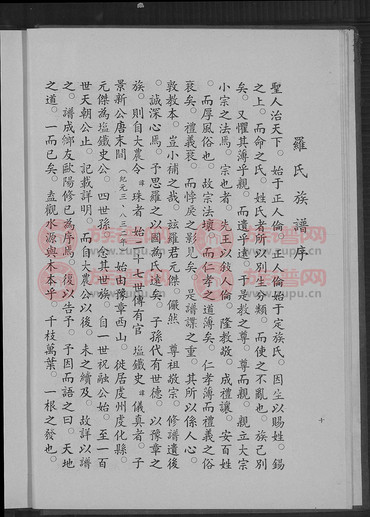 羅氏族譜序
聖人治天下。始于正人倫。正人倫始于定族氏。因生以賜姓。錫
之上。而命之氏。姓氏者所以別生分類。而使之不亂也。族己別
矣。又懼其薄乎親。而遺乎遠。于是教之尊尊而親親。立大宗
小宗之法焉。宗也者。先王以敘人倫。隆教敬。成禮讓。安百姓
。而厚風俗也。故宗法壞。而仁孝之道薄矣。仁孝薄而禮義之俗
衰矣。禮義衰。而悖戾之影見矣。是譜諜之重。其所以係人心。
敦教本。豈小補之哉。茲羅君元傑。儼然 尊祖敬宗。修譜遺後
。誠深心焉。予思羅之以國為氏遠矣。子孫代有世德。以豫章之
族。則自大農令 諱珠者 始二十七世傳有官 塩鐵史 諱儀真者。子
景新公唐末間(紀元三、八三二年)始由豫章西山。徙居虔州虔化縣。
元傑為塩鐵史公。四世孫。念其世族。自一世祝融公始。至一百
世天朝公止。記載詳明。而自大農公以後。未之續及。故詳以譜
之。譜成鄉友歐陽修已為序焉。復以告予。予因而語之曰。天地
之道。一而已矣。盍觀水源與木本乎。千枝萬葉。一根之發也。
十
族譜普查网
www.zupu.cn